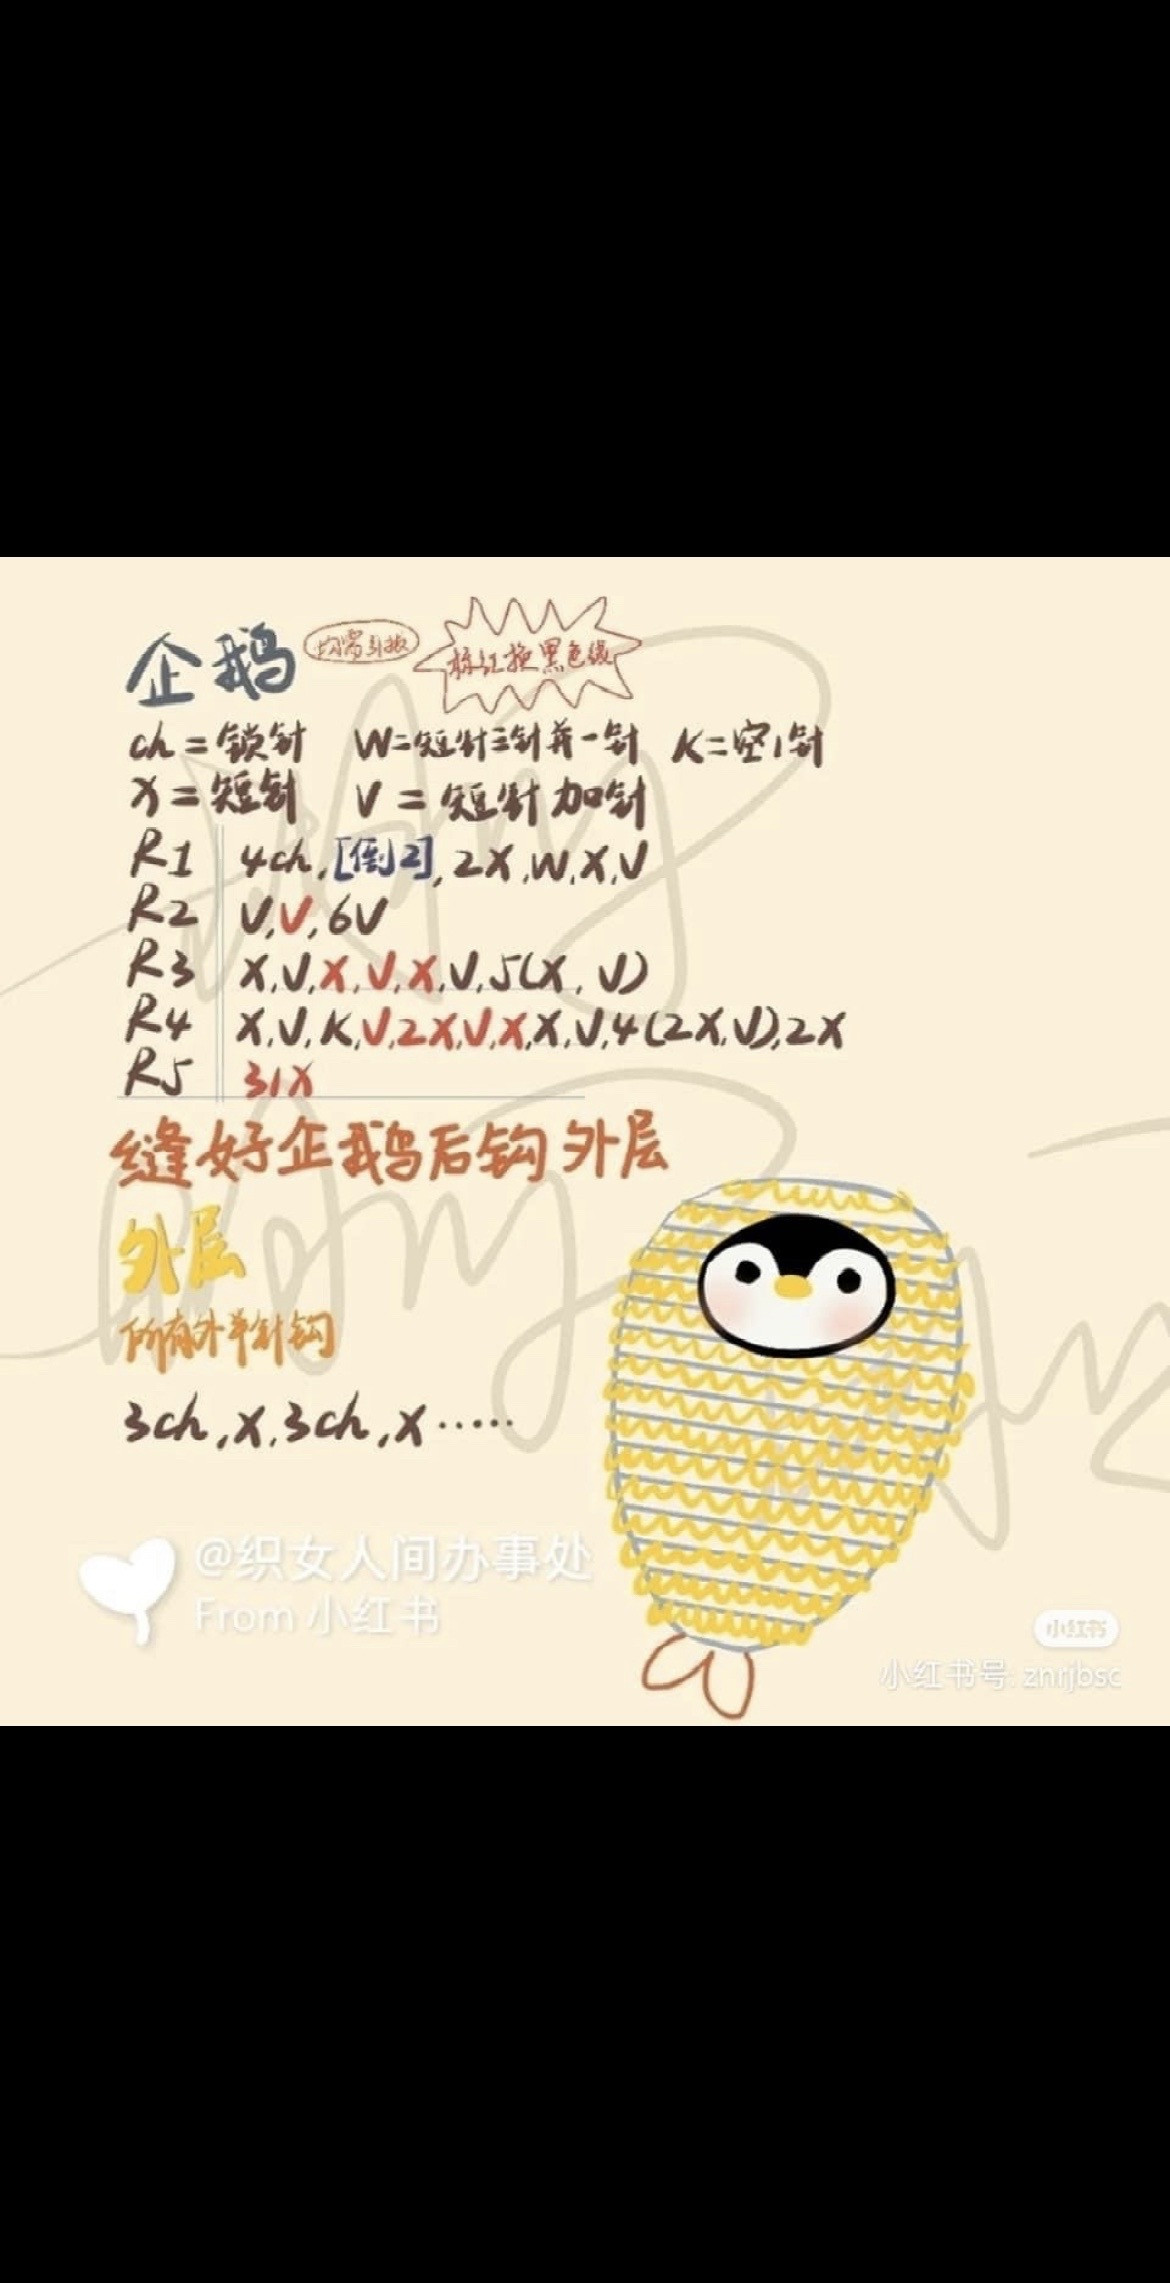 企鹅 均需引拔 标红换黑色线
ch=锁针 W=短针三针并一针 K=空1针
X=短针 V=短针加针
R1 4ch,[倒2],2X,W,X,V
R2 V,V,6V
R3 X,V,X,V,X,V,5(X,V)
R4 X,V,K,V,2X,V,X,X,V,4(2X,V),2X
R5 31X
缝好企鹅后钩外层
外层
所有外半针钩
3ch,X,3ch,X·····
@织女人间办事处
From 小红书
小红书
小红书号: znrjbsc